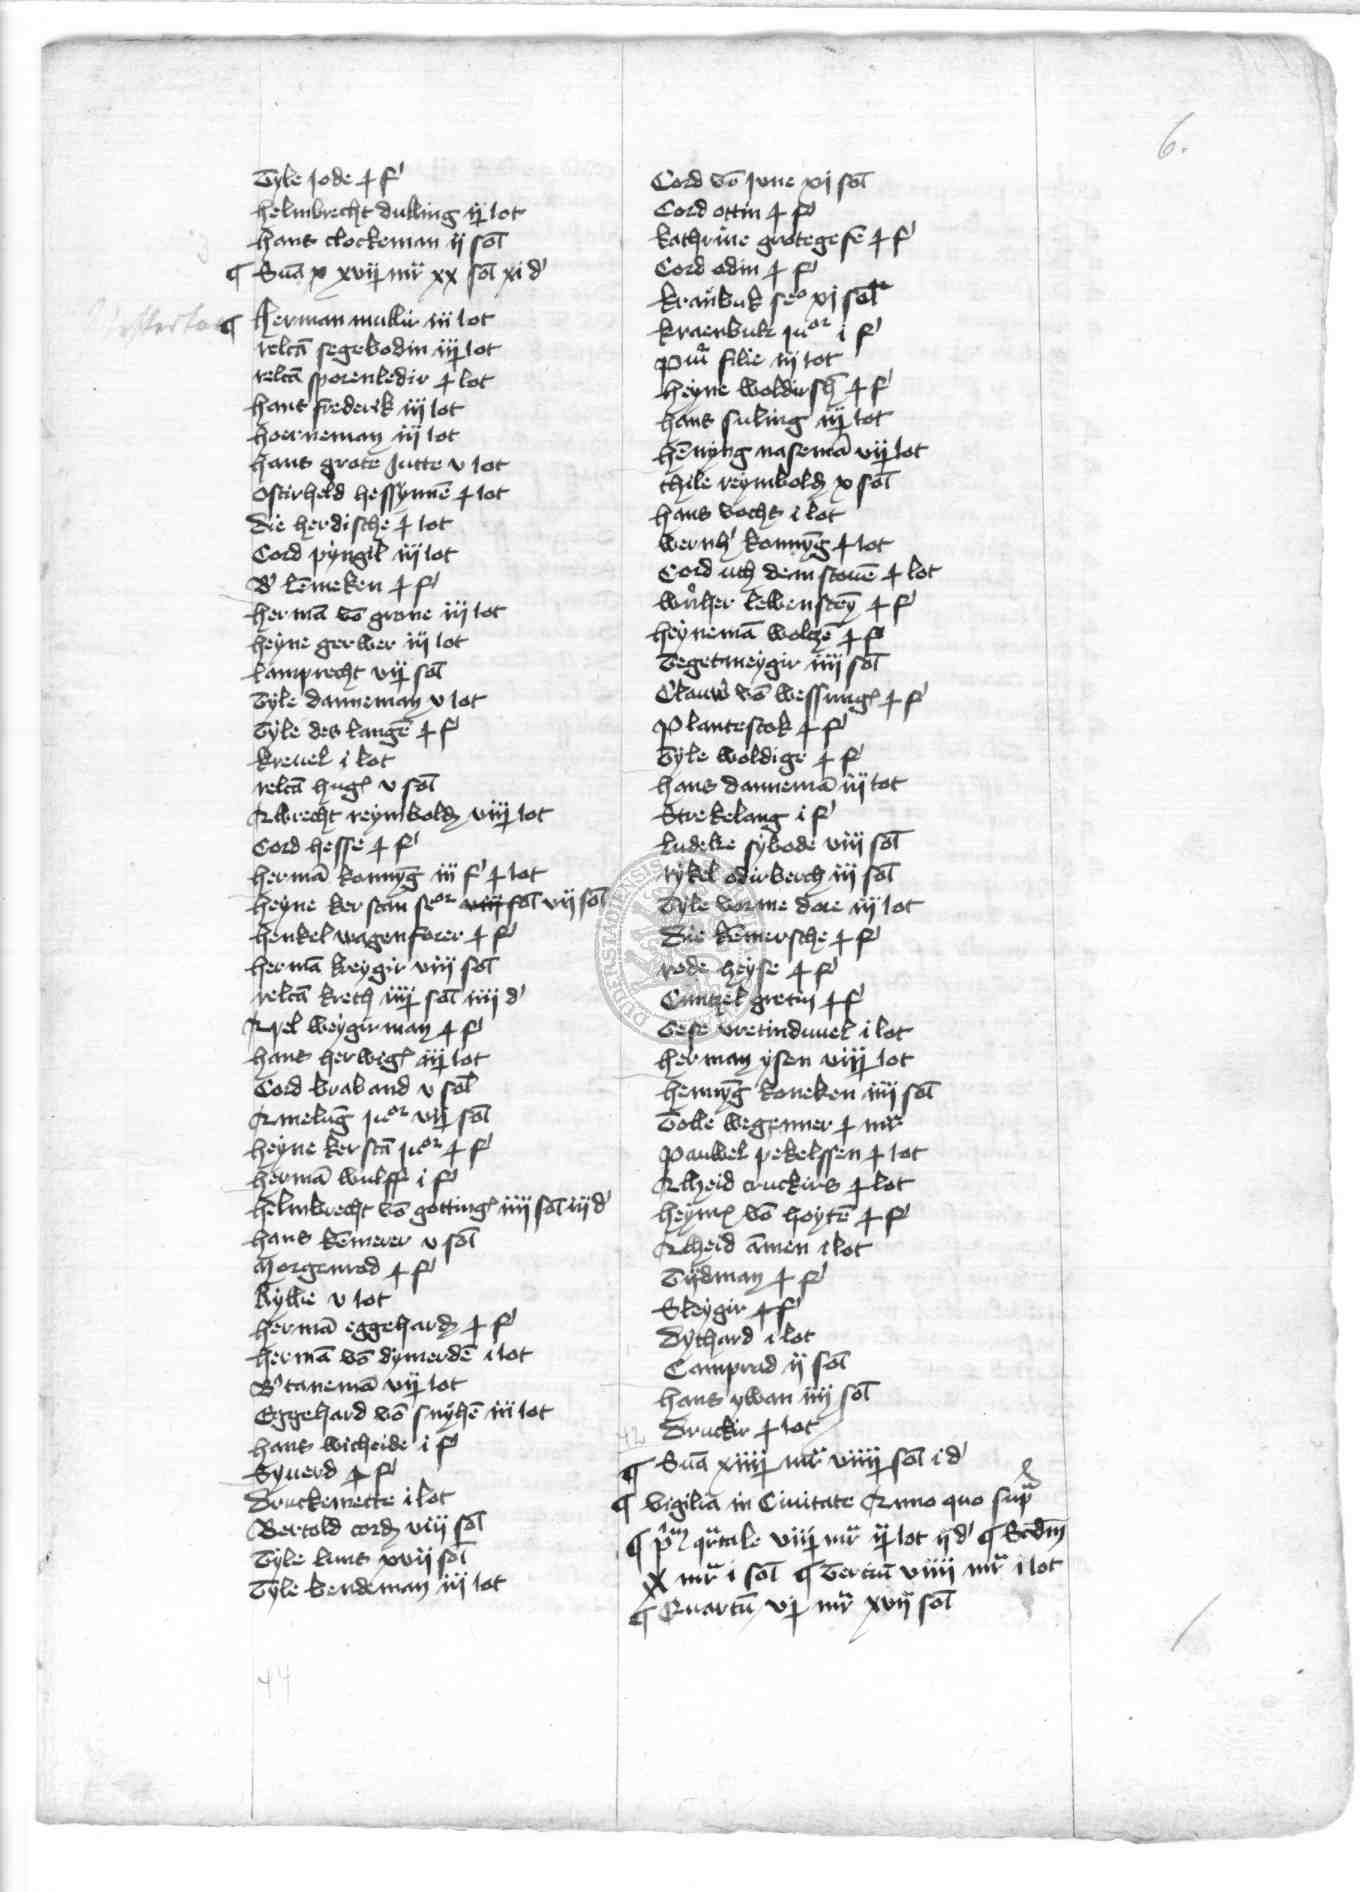 6.
Tyle Jode ½ f'
helmbrecht dulling iij lot
hans clockeman ij sol
¶ Sum̄ xvij mr xx sol xi d'
¶ Herman mullir iii lot
relcā segebodin iiij lot
relcā sporenledir ½ lot
hans frederik iij lot
hoerneman iij lot
hans grote Jutte v lot
Ostirheld hessymē ½ lot
Die herdische ½ lot
Cord pyngil iij lot
B' lēmeken ½ f'
hermā vō grone iij lot
heyne gerwer iij lot
lamprecht vij sol
Tyle danneman v lot
Tyle des langē ½ f'
kreuel i lot
relcā hug v sol
Albrecht reymbold viij lot
Cord hesse ½ f'
hermā konnyg iii f' ½ lot
heyne kerstan seor viii sol vij sol
henkel wagenforer ½ f'
hermā kreygir viij sol
relcā kreth iiij sol iiij d'
Apel weygirman ½ f'
hans herwig iiij lot
Cord braband v sol
Amelūg juor vij sol
heyne kerstā juor ½ f'
hermā wulff i f'
helmbrecht vō gotting iiij sol iij d'
hans kēmerer v sol
Morgenrod ½ f'
kyllie v lot
hermā eggehard ½ f'
hermā vō dymerdē i lot
B'tanemā vij lot
Eggehard vō snyhē iii lot
hans wicheide i f'
Syuerd ½ f'
Druckemette i lot
Bertold cord viij sol
Tyle luns xvij sol
Tyle bendeman iij lot
44
Cord vō Jvne xi sol
Cord ottin ½ f'
kathrine grotegesē ½ f'
Cord odin ½ f'
kranbuk seo xi sol
kraenbuk juor i f'
filie iij lot
heyne woldirsh ½ f'
hans suling iiij lot
hēnyng nasemā vij lot
thile reymbold x sol
hans vochs i lot
wernh' konnyg ½ lot
Cord uth dem stouē ½ lot
lewenstey ½ f'
heynemā wolczē ½ f'
Tegetmeygir iiij sol
Clauwes vō wessung ½ f'
Plantestok ½ f'
Tyle woldige ½ f'
hans dannemā iij lot
Strekelang i f'
ludeke sybode viij sol
rykel odirberch iij sol
Tyle vorme dore iij lot
Die kēmersche ½ f'
rode heyse ½ f'
Cuntzel gretin ½ f'
Tese vretinduuel i lot
herman ysen viiij lot
hennyg koneken iiij sol
Tolle wegenner ½ mr
Pauwel pekelssen ½ lot
Alheid cruckirs ½ lot
heynr vō hoytē ½ f'
Alheid āmen i lot
Tydman ½ f'
Sleygir ½ f'
Dythard i lot
Camprad ij sol
hans ywan iiij sol
Druckir ½ lot
42
¶ Sum̄ xiiij mr viiiij sol i d'
¶ vigilia in Ciuitate Anno quo supra
¶ pm qrtale viij mr iij lot ij d' ¶ Scdm
X mr i sol ¶ Terciū viiii mr i lot
¶ Quartū vj mr xvij sol